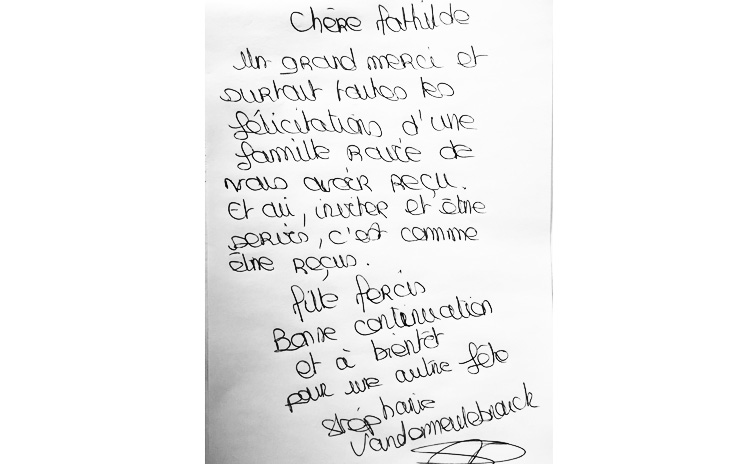 Chère Mathilde
Un grand merci et
surtout toutes les
félicitations d'une
famille ravie de
vous avoir reçu.
Et oui, inviter et être
servis, c'est comme
être reçus.
Mille Mercis
Bonne continuation
et à bientôt
pour une autre fête
Stéphanie
Vandermeulebrouck